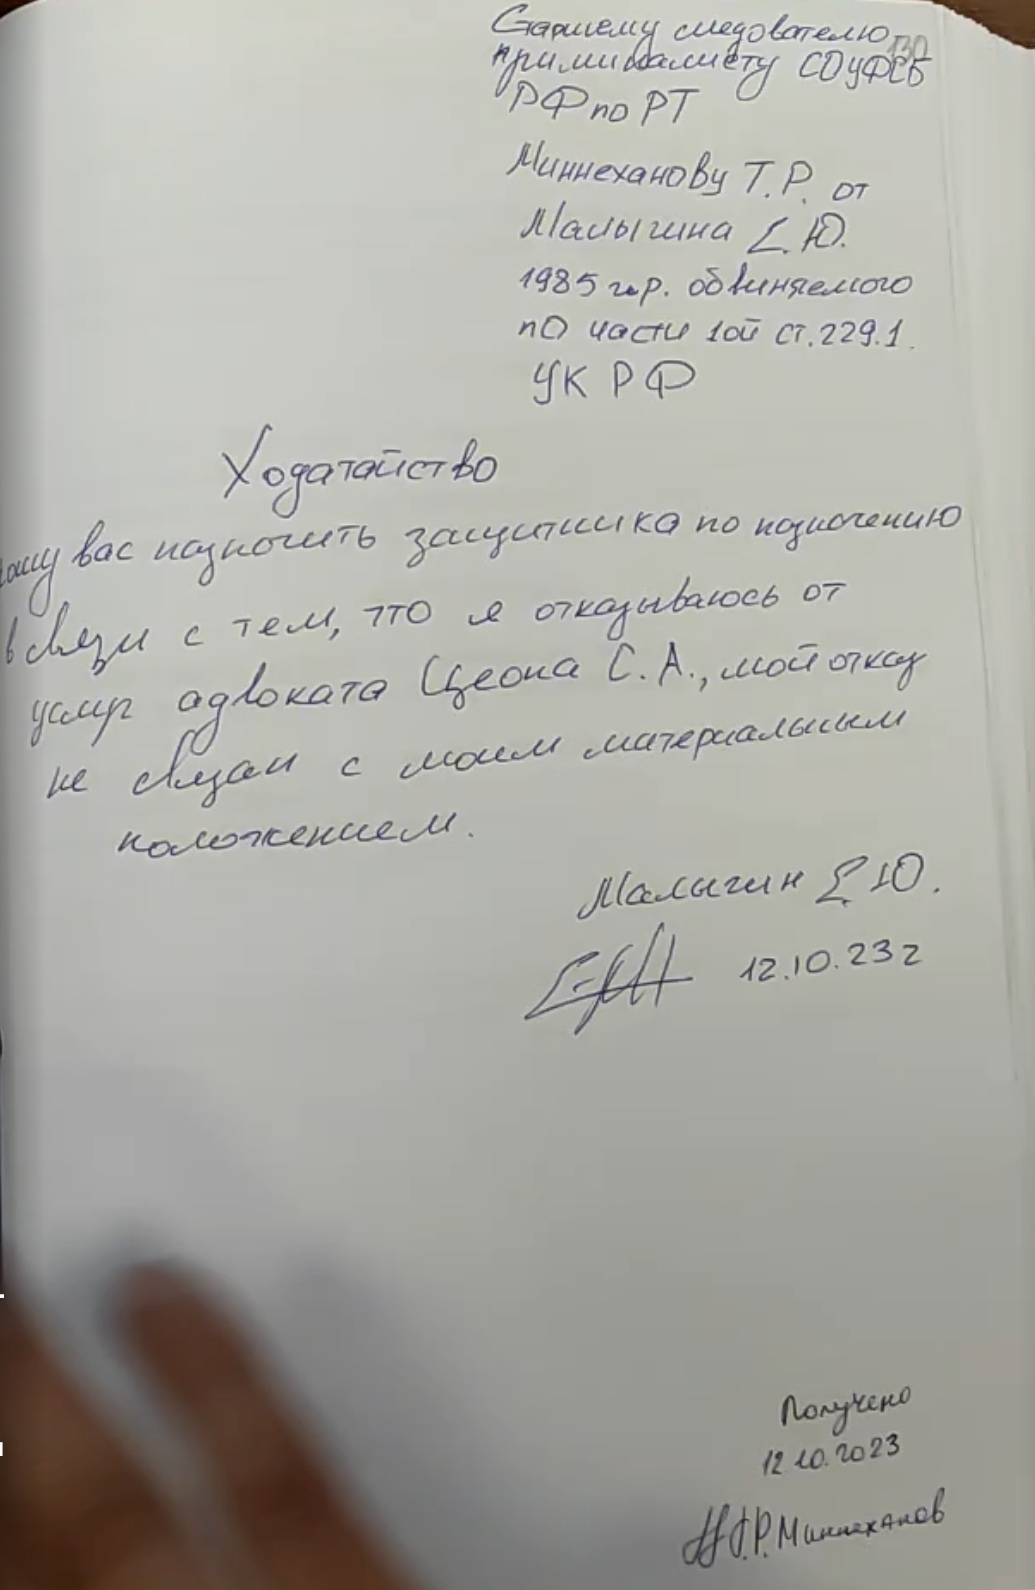 130
Старшему следователю
криминалисту СОУФСБ
РФ по РТ
Миннеханову Т.Р. от
Малыгина Е.Ю.
1985 г.р. обвиняемого
по части 1ой ст.229.1.
УК РФ
Ходатайство
вас назначить защитника по назначению
в связи с тем, что я отказываюсь от
услуг адвоката Цеона С.А., мой отказ
не связан с моим материальным
положением.
Малыгин Е.Ю.
12.10.23г
Получено
12.10.2023
Т.Р. Миннеханов